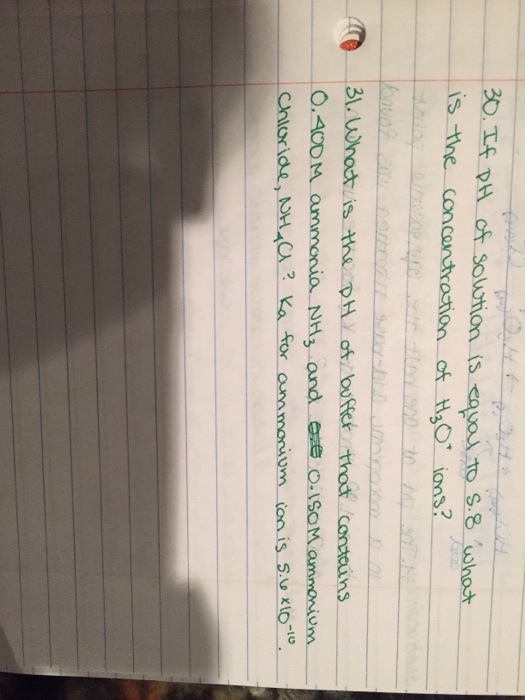 30. If pH of solution is equal to 5.8 what
is the concentration of H3O+ ions?
31. What is the pH of buffer that contains
0.400M ammonia NH3 and 0.150M ammonium
chloride, NH4Cl? Ka for ammonium ion is 5.6 x 10-10.